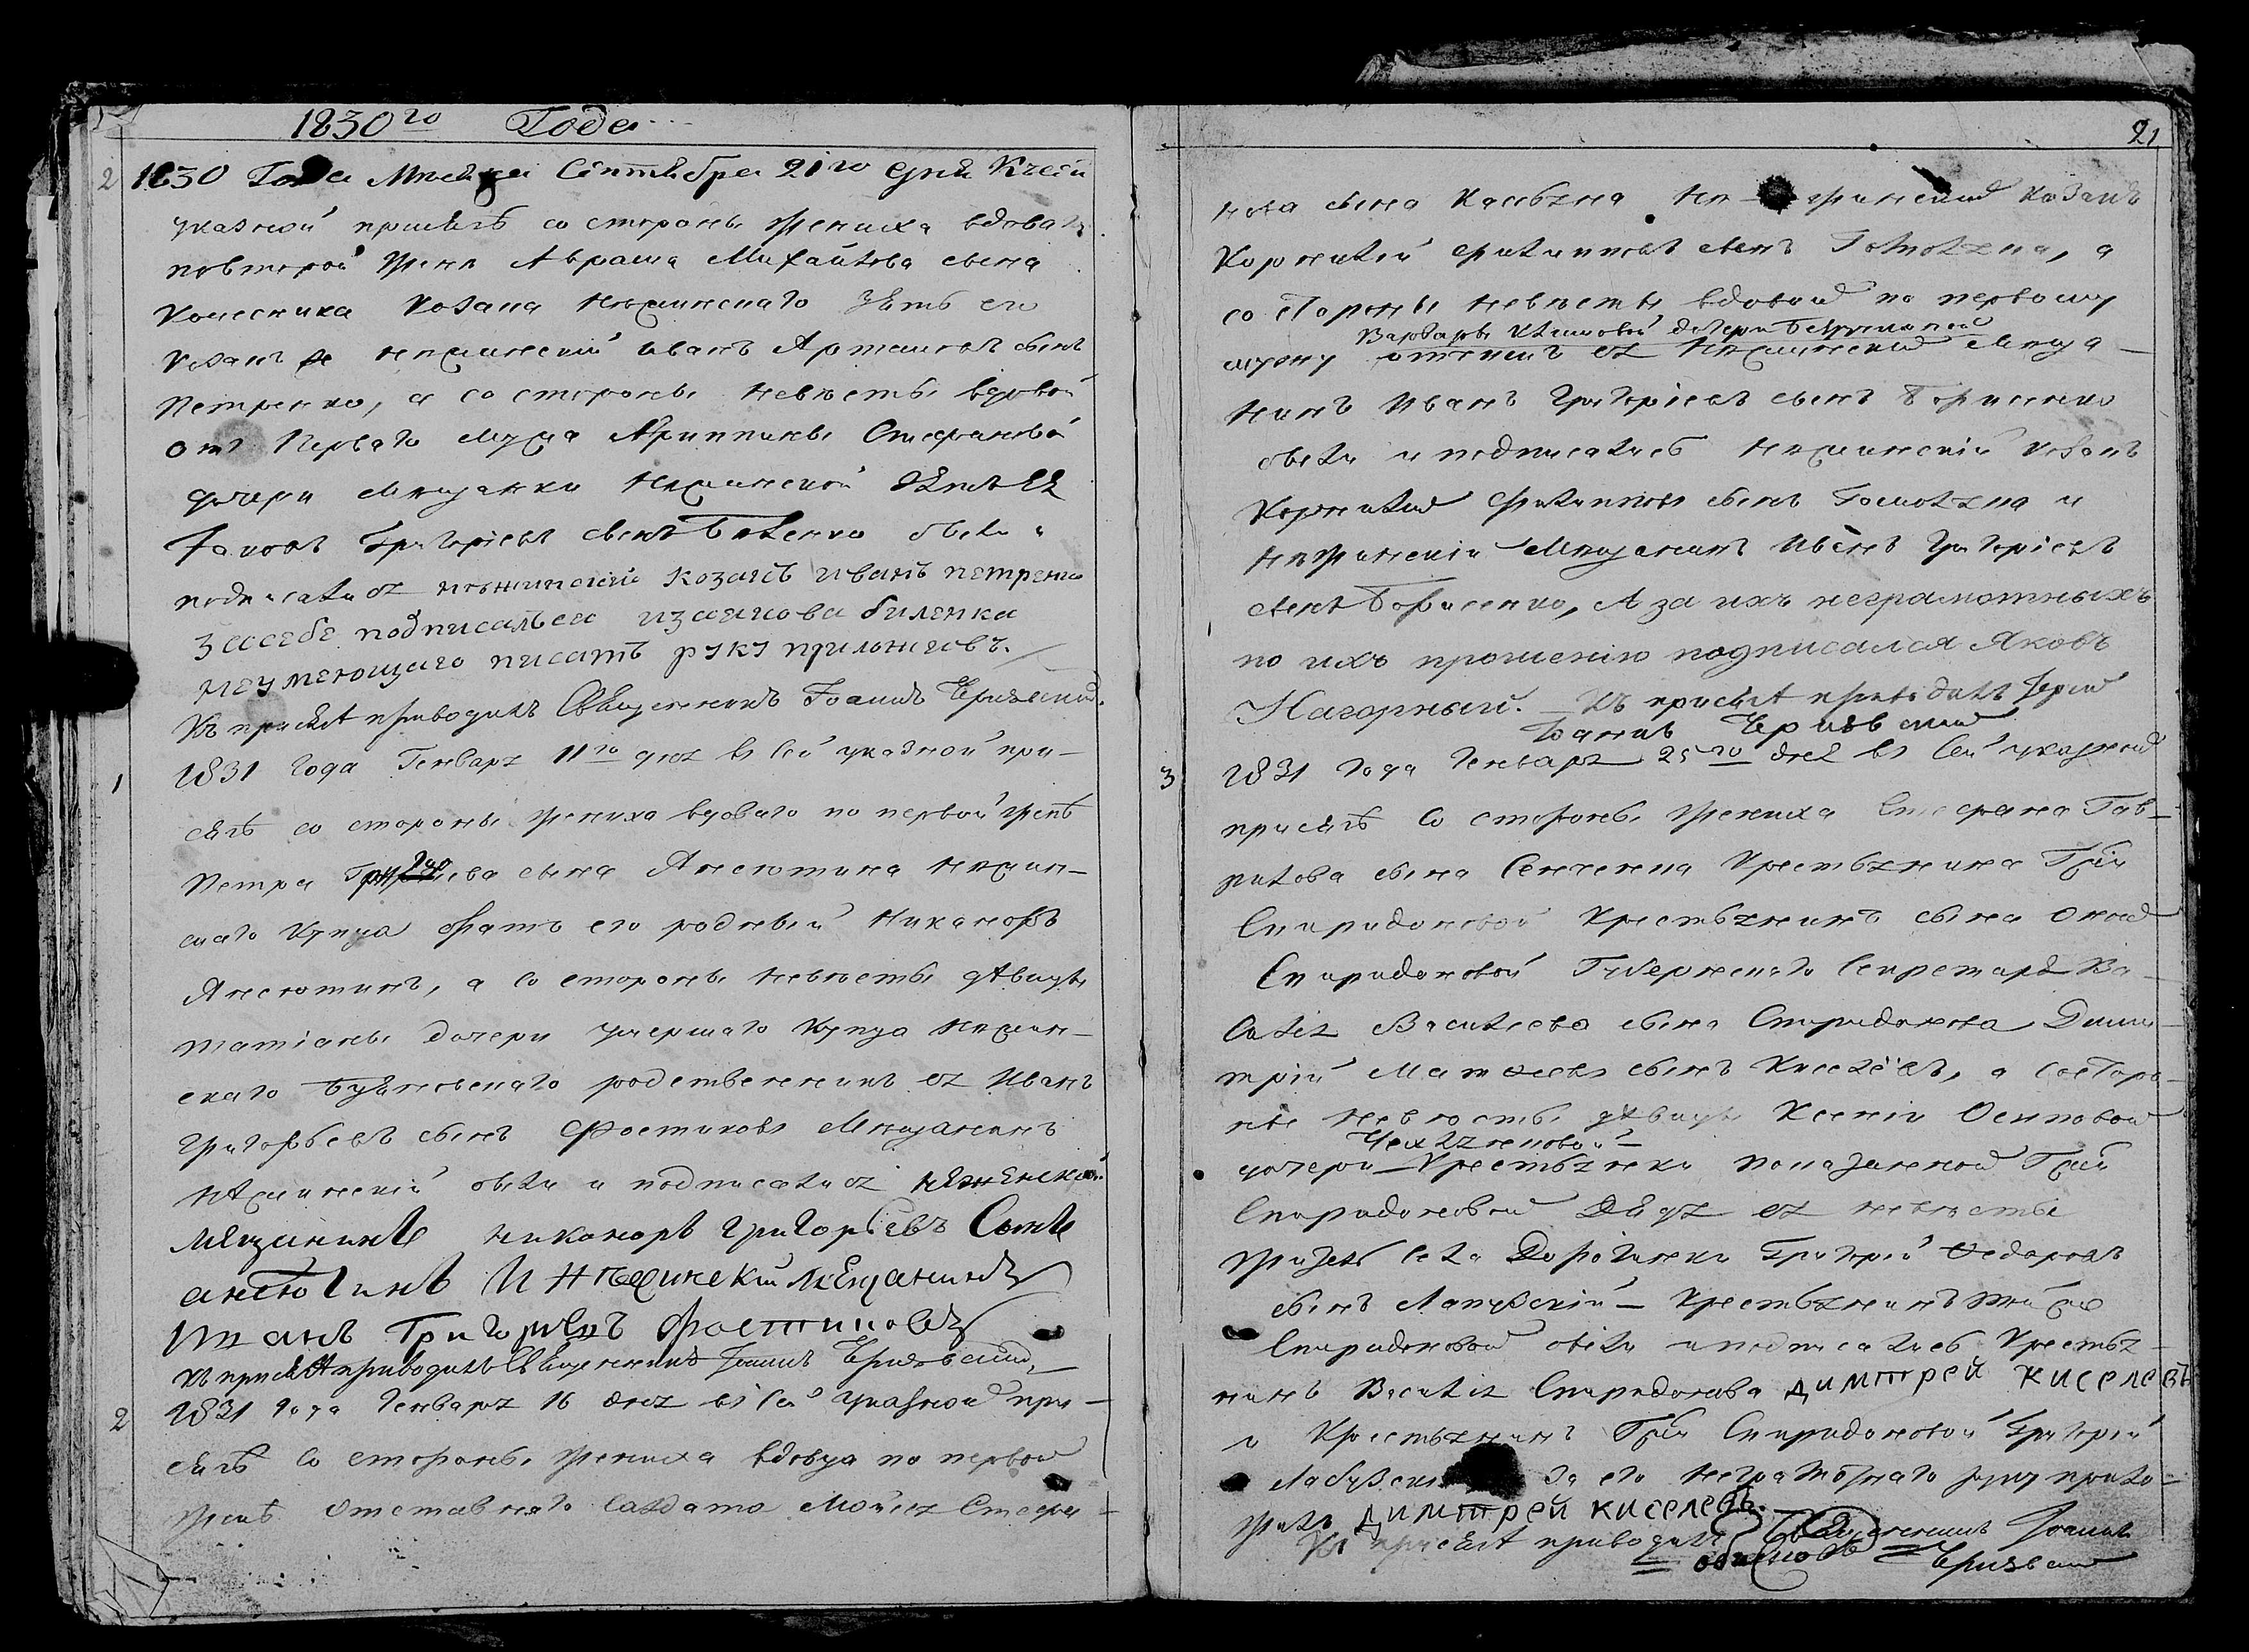 1830го Года
2 1830 Года Месяца Сентября 21го дня К сей
указной присягѣ со стороны жениха вдова
повторой жены Аврама Михайлова сына
Колесника Козака Нѣжинскаго зять его
Козакъ Нѣжинскій Иванъ Артемовъ сынъ
Петренко, а со стороны невѣсты вдовой
отъ Перваго мужа Агриппины Стефановой
дочери мѣщанки Нѣжинской зять ея
Іаковъ Григоріевъ сынъ Биленко были и
подписались нѣжинский козакъ иванъ петренко
засебе подписалъся изаякова биленка
неумеющаго писатъ руку приложилъ.
Къ присягѣ приводилъ Священникъ Іоаннъ
1 1831 Года Генваря 11го дня въ сей указной при-
сягѣ со стороны жениха вдоваго по первой женѣ
Петра сына Анстотина Нѣжин-
скаго Купца братъ его родный Никаноръ
а со стороны невѣсты дѣвицы
татіаны дочери умершаго Купца Нѣжин-
скаго родственникъ ея Иванъ
Григорьевъ сынъ Фостиковъ Мѣщанинъ
Нѣжинскій были и подписались неженской
мещининъ никаноръ григорьевъ Сынъ
И Нѣжинскій мѣщанинъ
Иванъ Григорьевъ Фостиковъ
къ присягѣ приводилъ Священникъ Іоаннъ
2 1831 Года Генваря 16 дня въ сей указной при-
сягѣ со стороны жениха вдовца по первой
женѣ отставнаго Солдата Мойсея Стефа-
21
нова сына Нѣжинский Козакъ
Корнилій Филипповъ сынъ а
со стороны невѣсты вдовой по первому
Варвары Климовой дочери
мужу отчимъ ея Нѣжинский Мѣща-
нинъ Иванъ Григоріевъ сынъ Борисенко
были и подписались Нѣжинскій Козакъ
Корнилий Филипповъ сынъ и
Нѣжинскій Мѣщанинъ Иванъ Григоріевъ
сынъ Борисенко, А за ихъ неграмотныхъ
по ихъ прошенію подписался Яковъ
Нагорный. Къ присягѣ приводилъ Іерей
Іоаннъ
3 1831 Года Генваря 25го дня въ сей указной
присягѣ со стороны жениха Стефана Гав-
рилова сына Крестьянина Г-жи
Спиридоновой Крестьянинъ сына оной
Спиридоновой Губернскаго Секретаря Ва-
силія Васильева сына Спиридонова Дими-
трій Матѳеевъ сынъ Киселёвъ, а состоро-
ны невѣсты дѣвицы Ксеніи Осиповой
дочери Крестьянки показанной Г-жи
Спиридоновой Дядя ея невѣсты
житель села Григорій Ѳедоровъ
сынъ Лабузскій – Крестьянинъ
Спиридоновой были и подписались Крестья-
нинъ Василія Спиридонова димитрей киселевъ
и Крестьянинъ Г-жи Спиридоновой Григорій
за его неграмотнаго руку прило-
жилъ димитрей киселевъ.
Къ присягѣ приводилъ Священникъ Іоаннъ